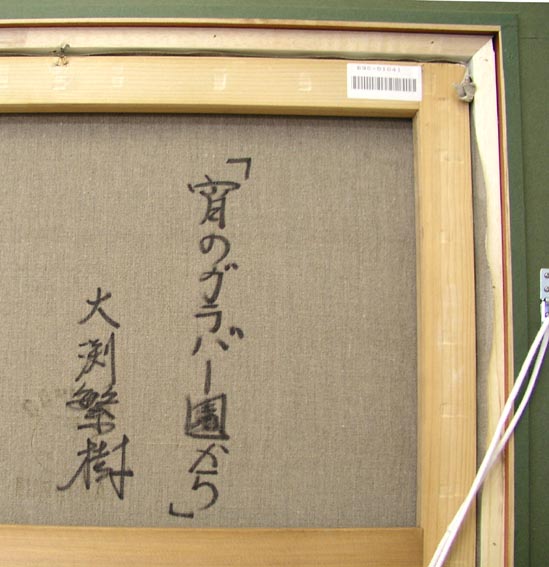 「宵のグラバー園から」
大渕繁樹